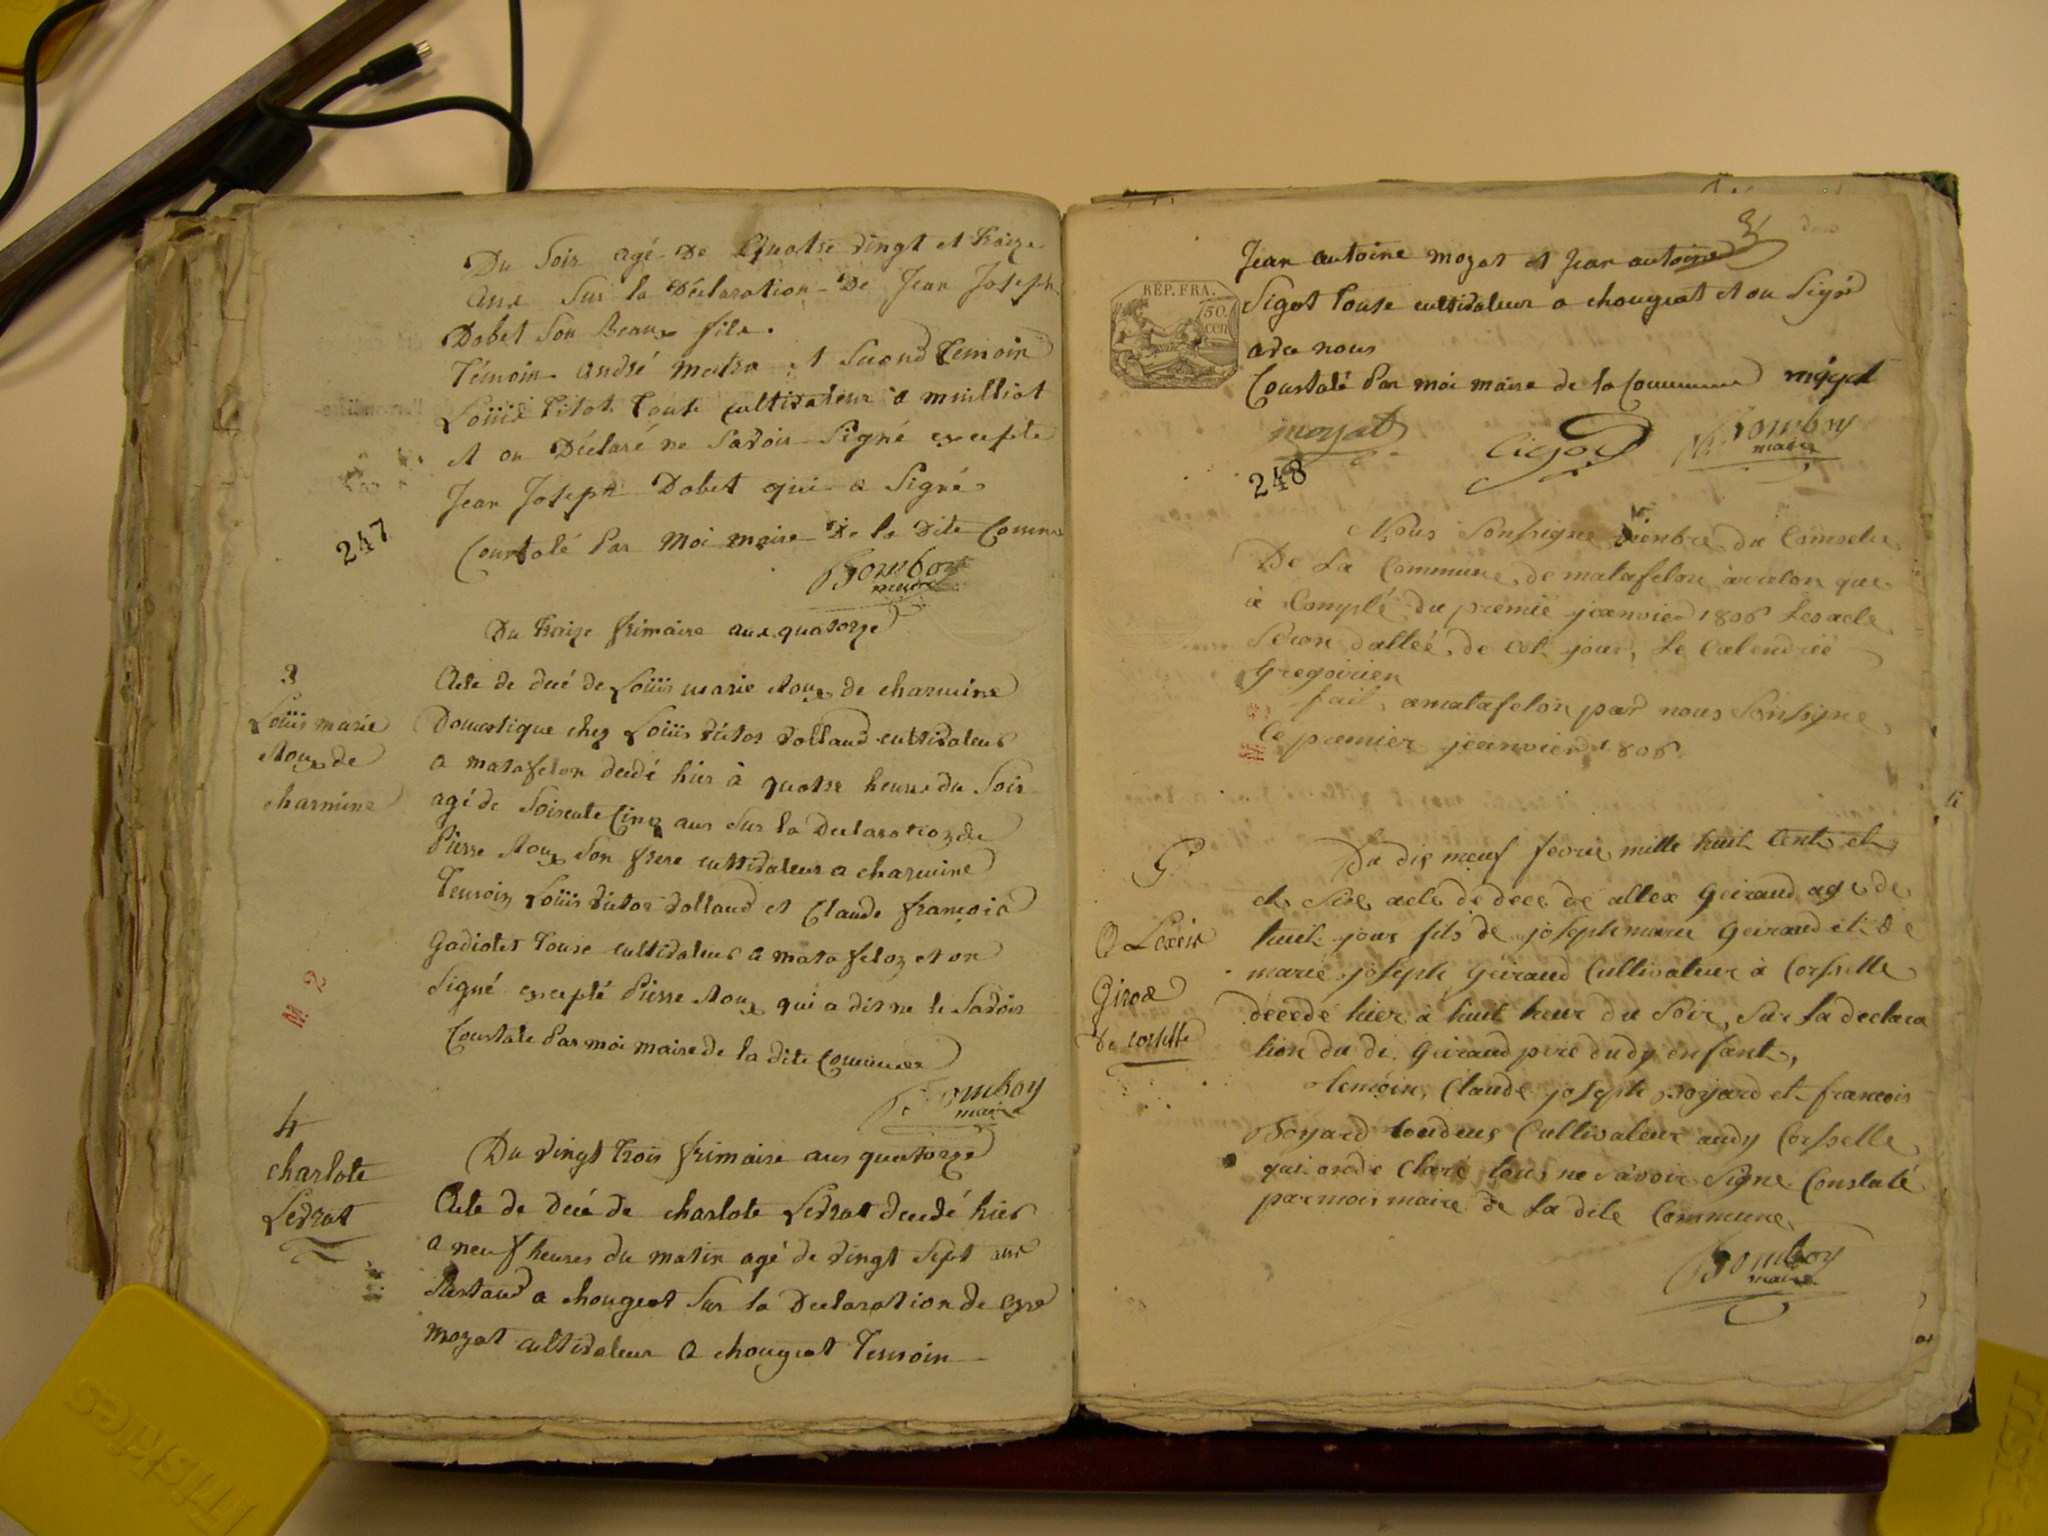 Du Soir agé De Quatre vingt et traize
ans Sur la Déclaration De Jean Joseph
Dobet Son Beaux file.
Témoin André et Second temoin
Loüis toute cultivateur a
et on Déclaré ne Savoir Signé excepte
Jean Joseph Dobet qui a Signé
Constaté Par Moi maire De la Dite Comm
247
Bomboy
maire
Du traize frimaire ans quatorze
3
Loüis marie
Roux de
charmine
Acte de decé de Loüis marie Roux de charmine
Domestique chez Loüis victor volland cultivateur
a matafelon decedé hier à quatre heure du Soir
agé de Soixente Cinq ans Sur la Declaration de
Pierre Roux Son frere cultivateur a charmine
Temoin Loüis victor volland et Claude françois
Gadiolet touse cultivateur a matafelon et on
Signé excepté Pierre Roux qui a dit ne le Savoir
Constate Par moi maire de la dite Commune
M. 2
Bomboy
maire
4
charlote
Levrat
Du vingt trois frimaire ans quatorze
Acte de decé de charlote Levrat decedé hier
a neuf heures du matin agé de vingt Sept ans
a chougeat Sur la Declaration de
mozat cultivateur a chougeat Temoin
3
Jean antoine mozat et Jean antoine
REP. FRA.
50
cen
Sigot touse cultivateur a chougeat et on Signé
avec nous
Constaté Par moi maire de la Commune
moyat Cigot Bomboy
maire
248
Nous Sousigne Membre du Conselle
De La Commune de matafelon que
à Compté du premie janvier 1806 Les acte
Seron dattée de cet jour, Le Calendrié
gregoirien
fait a matafelon par nous Sousigne
Ce premier jeanvier 1806.
Du dis neuf fevrie mille huit Cent et
et Sise acte de dece de allex Geiraud age de
huit jour fils de joseph marie Geiraud et de
marie joseph Geiraud Cultivateur à Corselle
decedé hier à huit heur du Soir, Sur la declara
tion du di Geiraud pere dudy enfant,
5
Alexis
Girod
de corselle
temoin, Claude joseph Boyard et francois
Boyard tous Cultivateur audy Corselle
qui on de claré tous ne Savoir Signe Constaté
par moi maire de La dite Commune
Bomboy
maire
Triskles